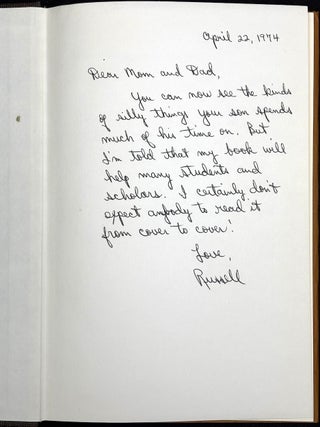 April 22, 1974
Dear Mom and Dad,
You can now see the kinds
of silly things your son spends
much of his time on. But
I'm told that my book will
help many students and
scholars. I certainly don't
expect anybody to read it
from cover to cover!
Love,
Russell